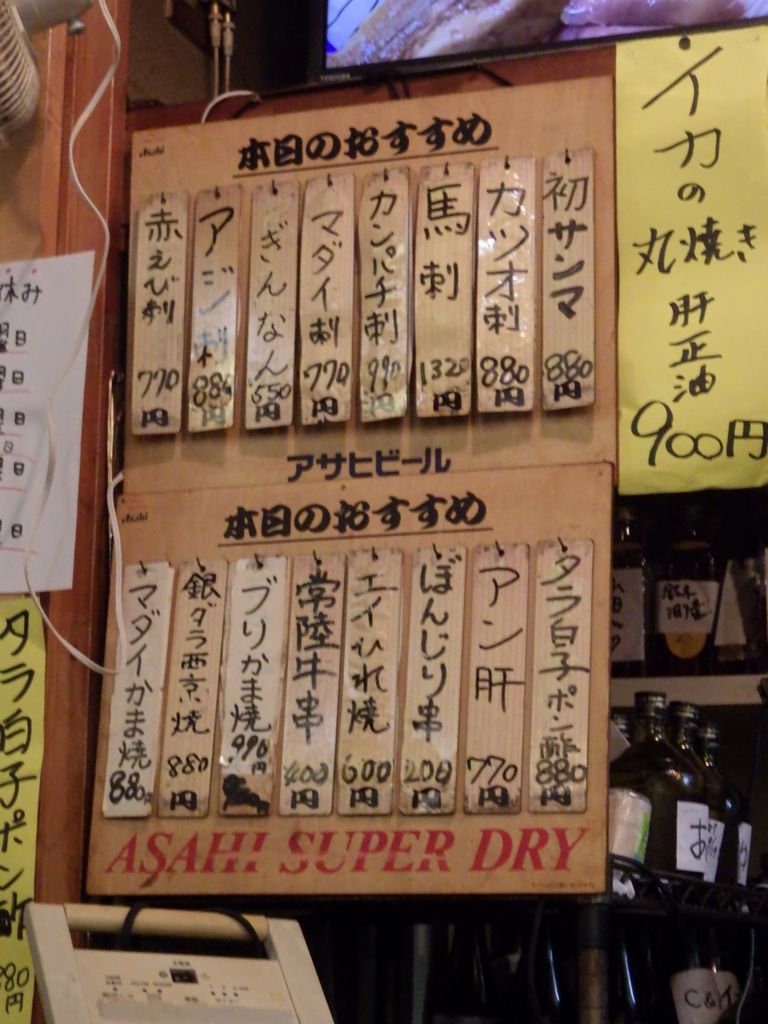 TOSHIBA
Asahi
本日のおすすめ
初サンマ 880円
カツオ刺 880円
馬刺 1320円
カンパチ刺 990円
マダイ刺 770円
ぎんなん 550円
アジ刺 880円
赤えび刺 770円
アサヒビール
Asahi
本日のおすすめ
タラ白子ポン酢 880円
アン肝 770円
ぼんじり串 200円
エイひれ焼 600円
常陸牛串 400円
ブリかま焼 990円
銀ダラ西京焼 880円
マダイかま焼 880円
ASAHI SUPER DRY
イカの
丸焼き
肝正油
900円
休み
曜日
曜日
曜日
日
曜日
曜日
タラ白子ポン酢
880円
C&イ